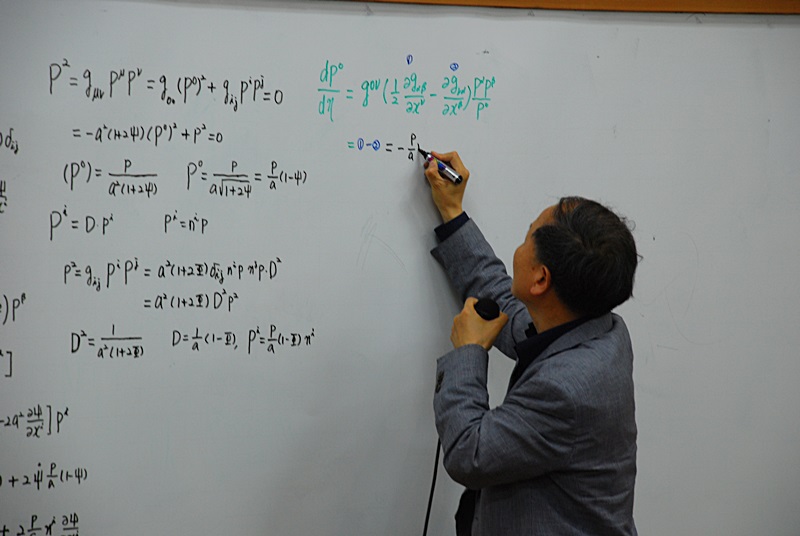 P² = g_μν P^μ P^ν = g_00 (P⁰)² + g_ij P^i P^j = 0
= -a²(1+2ψ)(P⁰)² + P² = 0
(P⁰) = P / a²(1+2ψ) P⁰ = P / a√1+2ψ = P/a (1-ψ)
P^i = D · P^i P^i = n^i P
P² = g_ij P^i P^j = a²(1+2Φ) δ_ij n^i P n^j P · D²
= a²(1+2Φ) D² P²
D² = 1 / a²(1+2Φ) D = 1/a (1-Φ), P^i = P/a (1-Φ) n^i
① ②
dP⁰/dη = g^0ν (1/2 ∂g_αβ/∂x^ν - ∂g_να/∂x^β) P^α P^β / P⁰
= ① - ② = - P/a
) P^β
]
-2a² ∂ψ/∂x^i ] P^i
+ 2ψ̇ P/a (1-ψ)
+ 2 P/a n^i ∂ψ